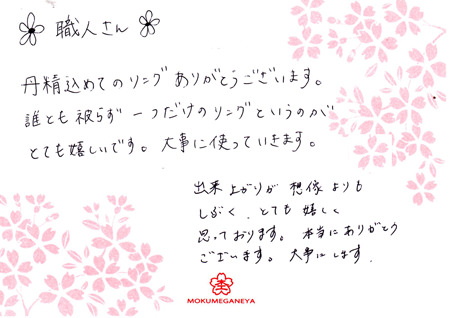 職人さん
丹精込めてのリングありがとうございます。
誰とも被らず一つだけのリングというのが
とても嬉しいです。大事に使っていきます。
出来上がりが想像よりも
しぶく、とても嬉しく
思っております。本当にありがとう
ございます。大事にします.
MOKUMEGANEYA